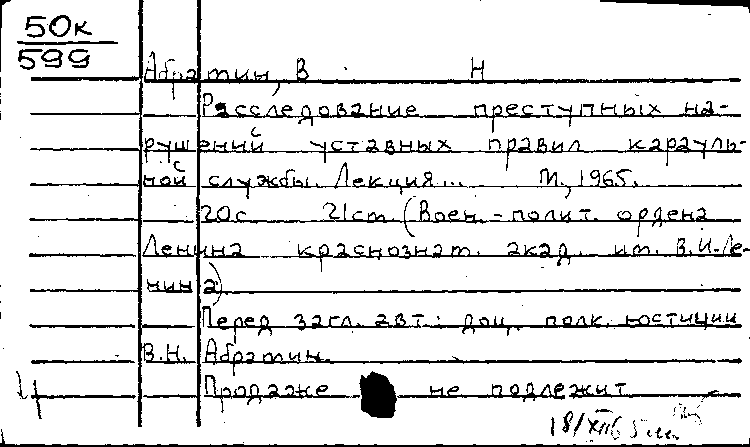 50к
599
Абрамин, В Н
Расследование преступных на-
рушений уставных правил карауль-
ной службы. Лекция... М., 1965.
20с 21см (Воен.-полит. ордена
Ленина краснознам. акад. им. В.И. Ле-
нина)
Перед загл. авт.: доц. полк. юстиции
В.Н. Абрамин.
Продаже не подлежит
18/XII 65